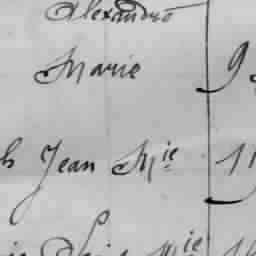 Alexandre
Marie 9
h Jean Mie 11
Mie